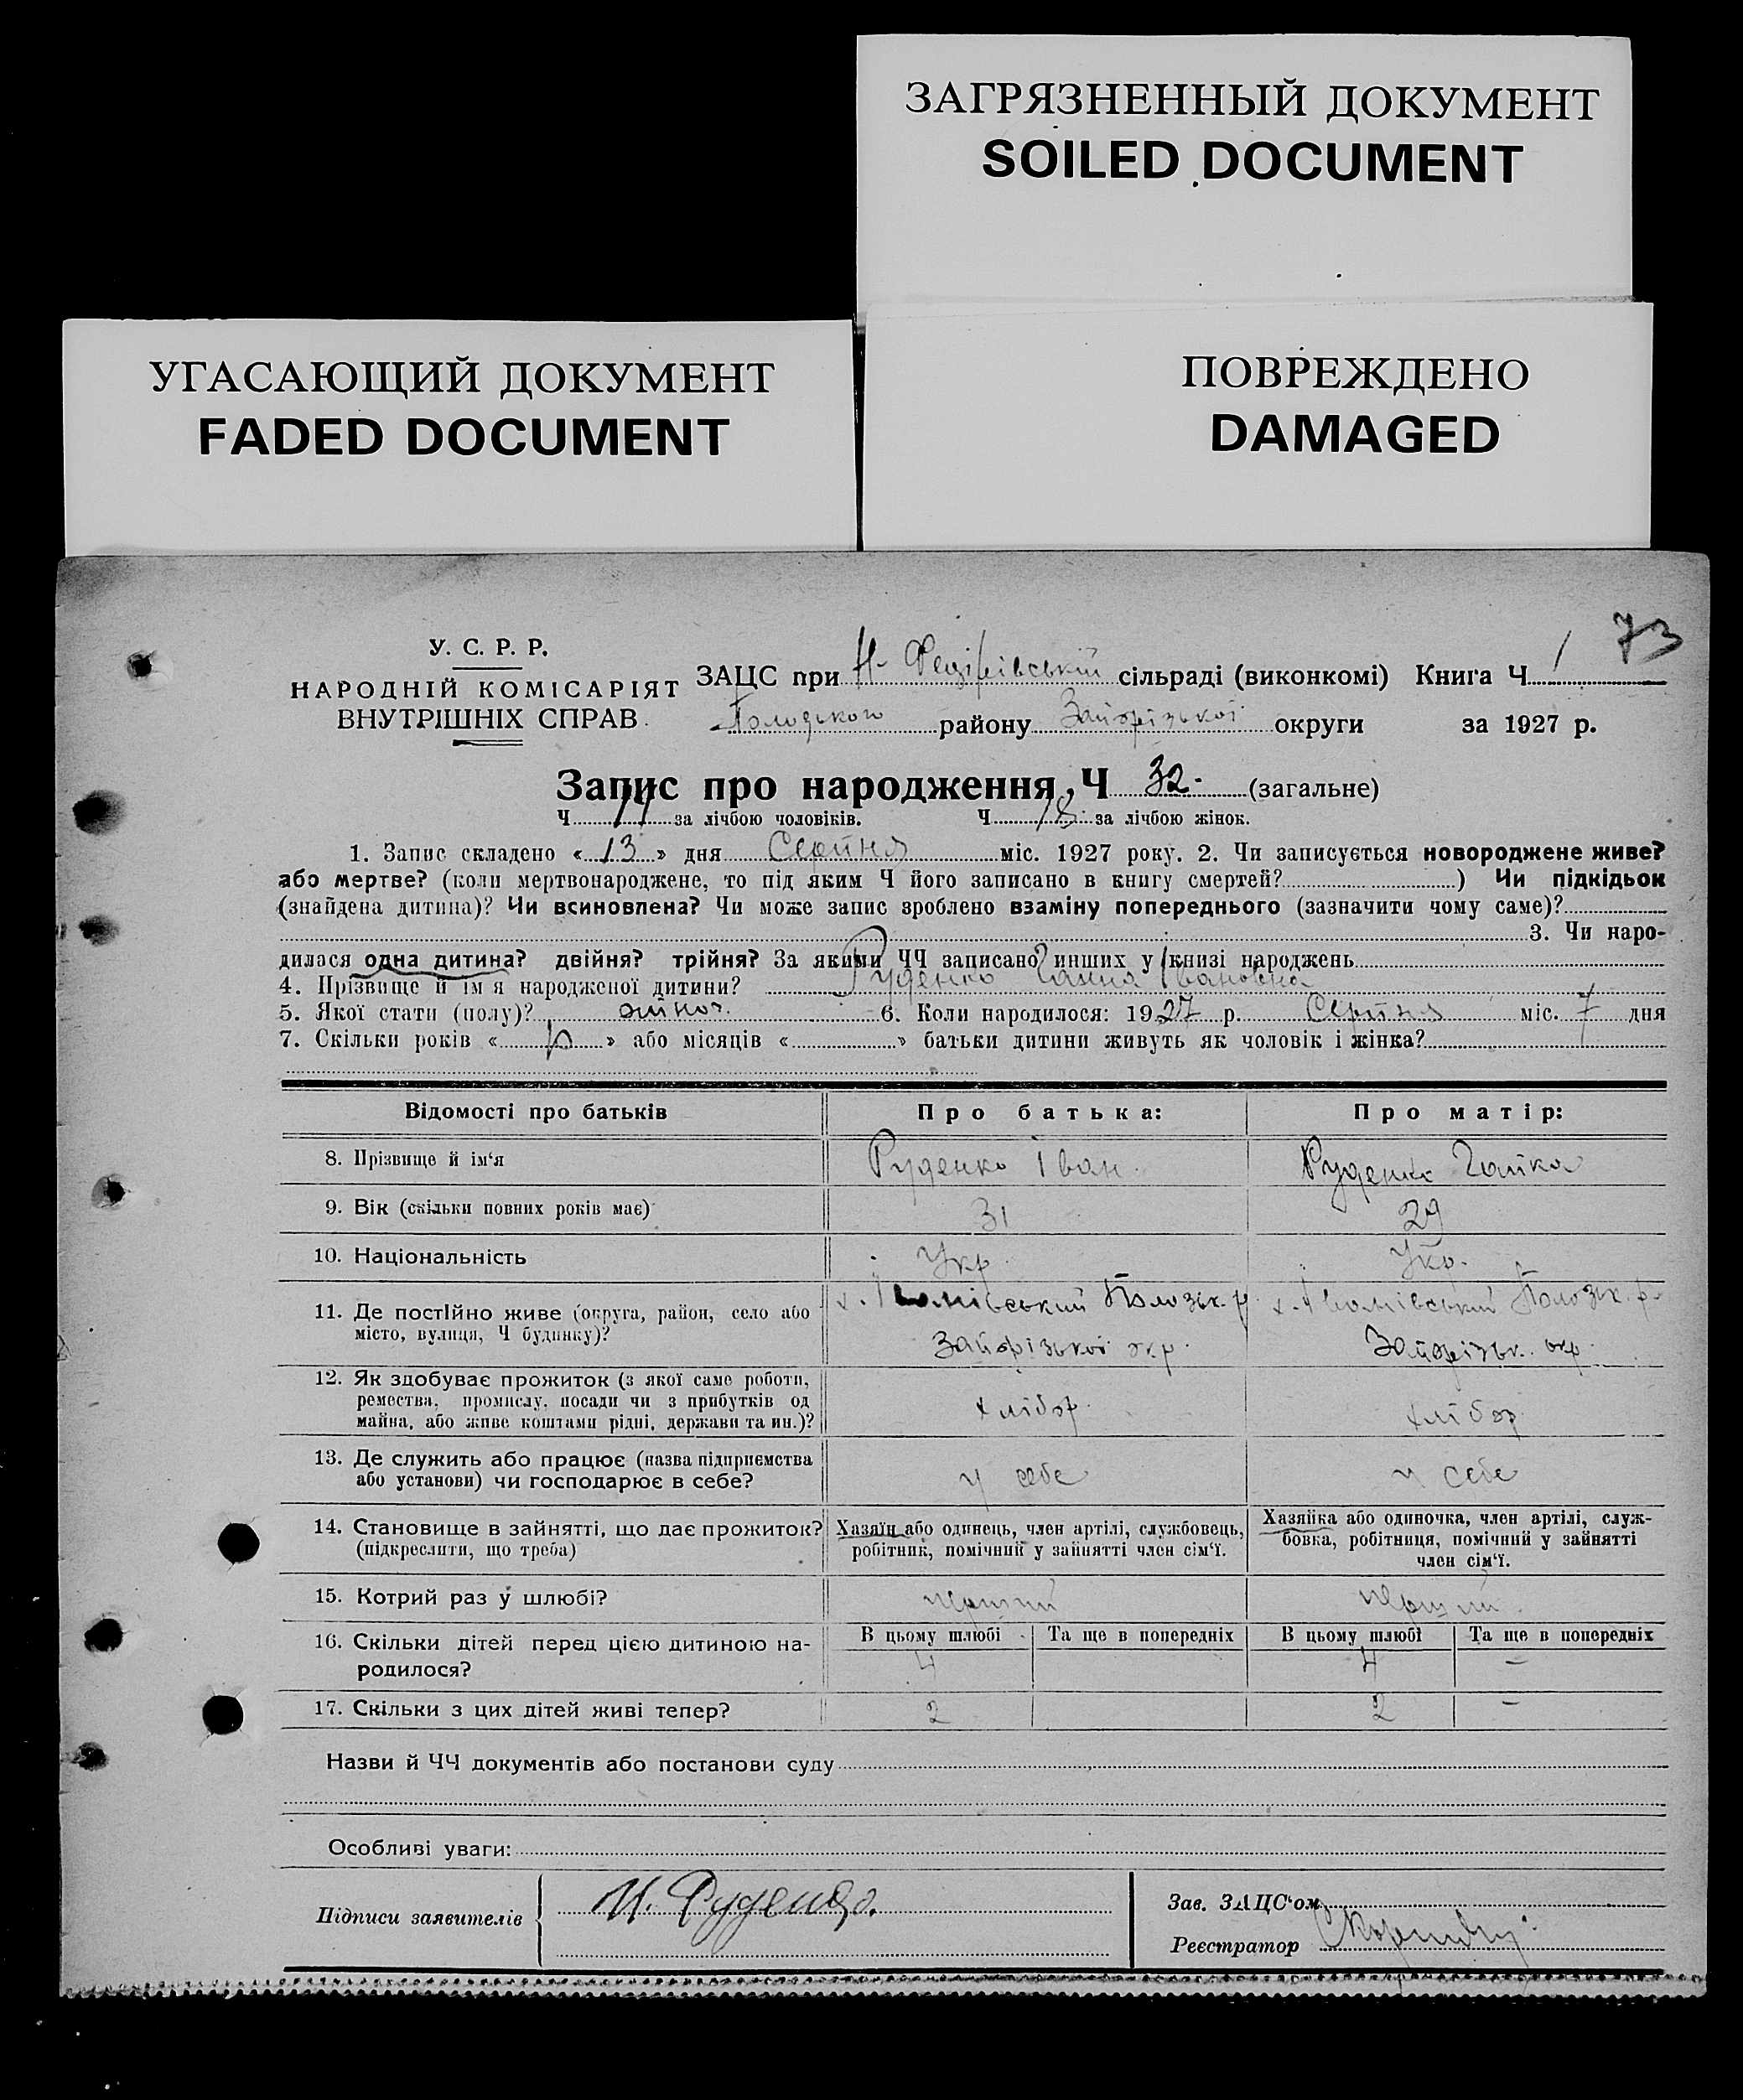 ЗАГРЯЗНЕННЫЙ ДОКУМЕНТ
SOILED DOCUMENT
УГАСАЮЩИЙ ДОКУМЕНТ
FADED DOCUMENT
ПОВРЕЖДЕНО
DAMAGED
73
У. С. Р. Р.
НАРОДНІЙ КОМІСАРІЯТ
ВНУТРІШНІХ СПРАВ.
ЗАЦС при Н- Федірівській сільраді (виконкомі) Книга Ч 1
району Запорізької округи за 1927 р.
Запис про народження, Ч 32 (загальне)
Ч 14 за лічбою чоловіків. Ч 18 за лічбою жінок.
1. Запис складено « 13 » дня Серпня міс. 1927 року. 2. Чи записується новороджене живе?
або мертве? (коли мертвонароджене, то під яким Ч його записано в книгу смертей? ) Чи підкідьок
(знайдена дитина)? Чи всиновлена? Чи може запис зроблено взаміну попереднього (зазначити чому саме)?
3. Чи наро-
дилася одна дитина? двійня? трійня? За якими ЧЧ записано инших у книзі народжень
4. Прізвище й ім'я народженої дитини? Руденко Ганна Івановна
5. Якої стати (полу)? жіноч. 6. Коли народилося: 1927 р. Серпня міс. 7 дня
7. Скільки років « » або місяців « » батьки дитини живуть як чоловік і жінка?
Відомості про батьків
Про батька:
Про матір:
8. Прізвище й ім'я Руденко Іван Руденко
9. Вік (скільки повних років має) 31 29
10. Національність Укр. Укр.
11. Де постійно живе (округа, район, село або
місто, вулиця, Ч будинку)?
х. Полозьк. р. х. Полозьк. р.
Запорізької окр. Запорізьк. окр.
12. Як здобуває прожиток (з якої саме роботи,
ремества, промислу, посади чи з прибутків од
майна, або живе коштами рідні, держави та ин.)?
хлібор. хлібор.
13. Де служить або працює (назва підприємства
або установи) чи господарює в себе?
у себе у себе
14. Становище в зайнятті, що дає прожиток?
(підкреслити, що треба)
Хазяїн або одинець, член артілі, службовець,
робітник, помічний у зайнятті член сім'ї.
Хазяйка або одиночка, член артілі, служ-
бовка, робітниця, помічний у зайнятті
член сім'ї.
15. Котрий раз у шлюбі? перший перший
16. Скільки дітей перед цією дитиною на-
родилося?
В цьому шлюбі Та ще в попередніх В цьому шлюбі Та ще в попередніх
4 4 –
17. Скільки з цих дітей живі тепер? 2 2 –
Назви й ЧЧ документів або постанови суду
Особливі уваги:
Підписи заявителів И. Руденко.
Зав. ЗАЦС'ом
Реєстратор